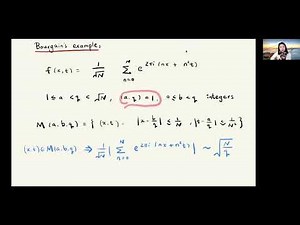 Bourgain's example:
f(x,t) = 1/√N ∑_{n=0}^{N} e^{2πi(nx + n²t)}
1 ≤ a < q < √N, (a,q)=1, 0≤b<q integers
M(a,b,q) = { (x,t) : |x - b/q| ≤ 1/N, |t - a/q| ≤ 1/N² }
(x,t) ∈ M(a,b,q) ⇒ 1/√N | ∑_{n=0}^{N} e^{2πi(nx+n²t)} | ~ √(N/q)